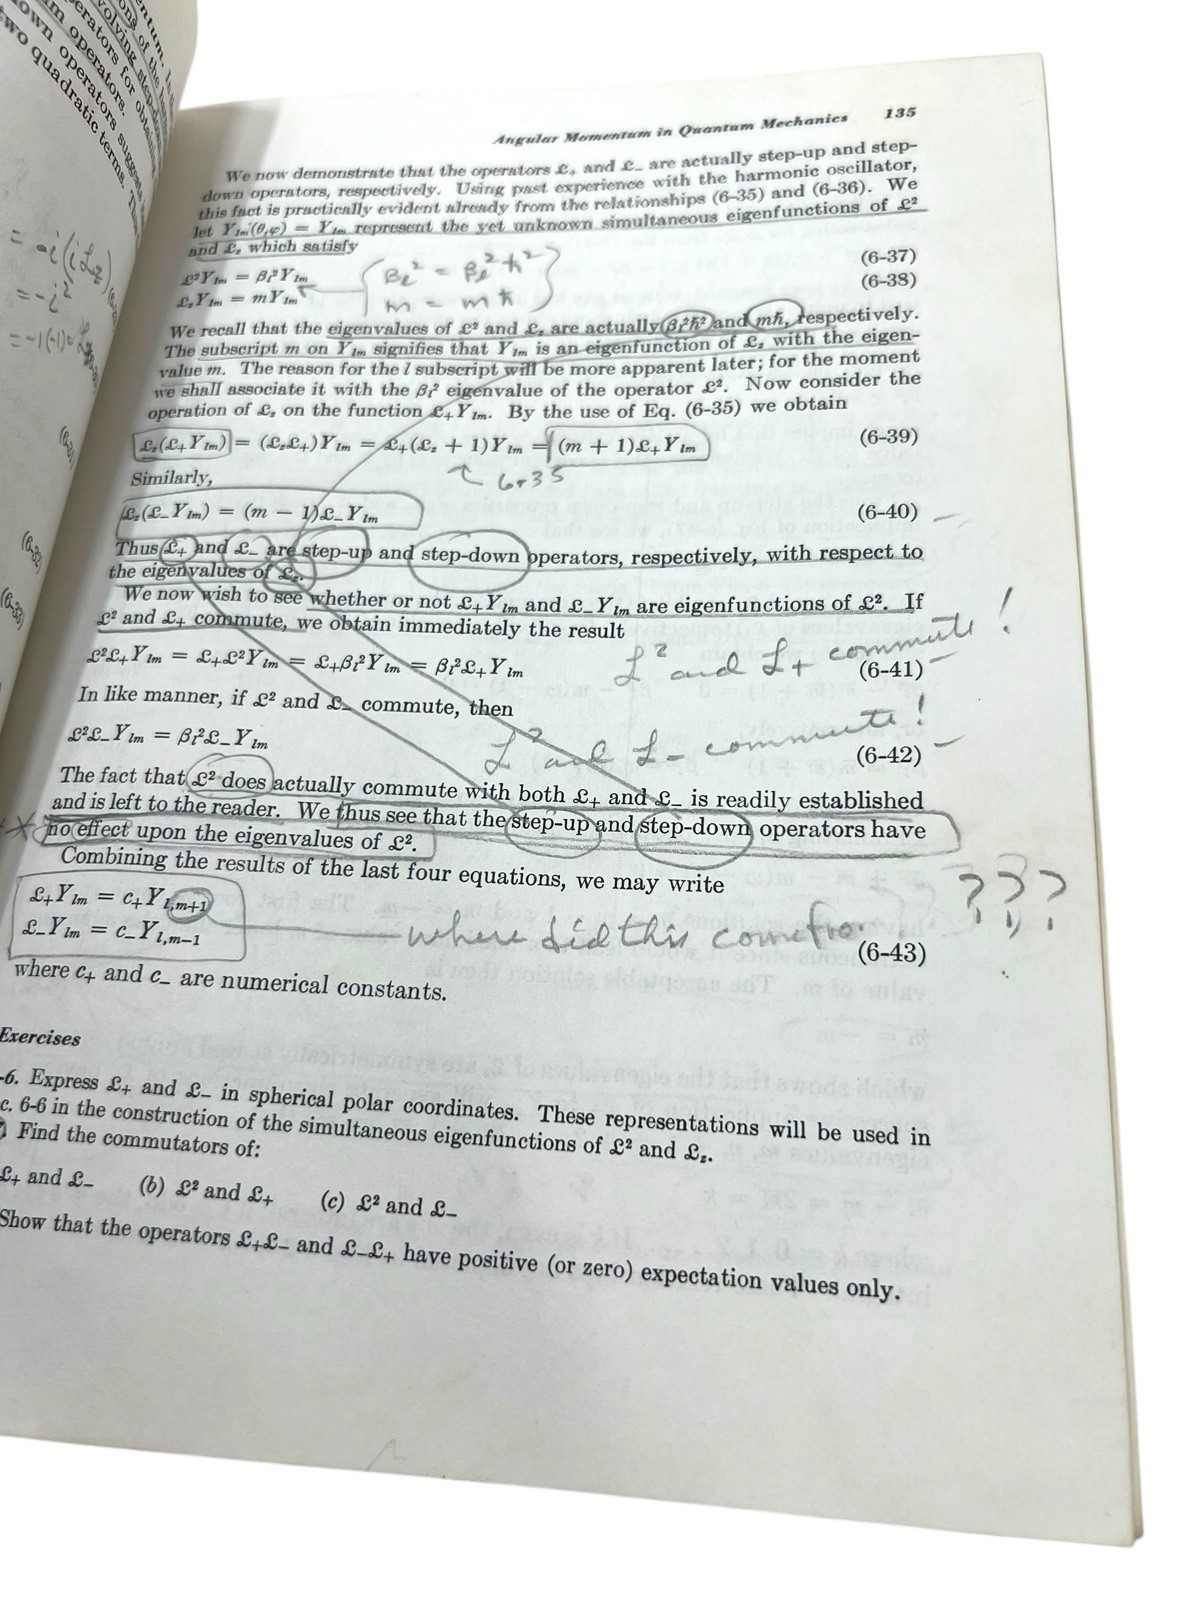 Angular Momentum in Quantum Mechanics 135
We now demonstrate that the operators ℒ₊ and ℒ₋ are actually step-up and step-
down operators, respectively. Using past experience with the harmonic oscillator,
this fact is practically evident already from the relationships (6-35) and (6-36). We
let Yₗₘ(θ,φ) = Yₗₘ represent the yet unknown simultaneous eigenfunctions of ℒ²
and ℒ_z which satisfy
ℒ²Yₗₘ = βₗ²Yₗₘ (6-37)
ℒ_zYₗₘ = mYₗₘ (6-38)
βₗ² = βₗ²ħ²
m = mħ
We recall that the eigenvalues of ℒ² and ℒ_z are actually βₗ²ħ² and mħ, respectively.
The subscript m on Yₗₘ signifies that Yₗₘ is an eigenfunction of ℒ_z with the eigen-
value m. The reason for the l subscript will be more apparent later; for the moment
we shall associate it with the βₗ² eigenvalue of the operator ℒ². Now consider the
operation of ℒ_z on the function ℒ₊Yₗₘ. By the use of Eq. (6-35) we obtain
ℒ_z(ℒ₊Yₗₘ) = (ℒ_zℒ₊)Yₗₘ = ℒ₊(ℒ_z + 1)Yₗₘ = (m + 1)ℒ₊Yₗₘ (6-39)
Similarly,
ℒ_z(ℒ₋Yₗₘ) = (m − 1)ℒ₋Yₗₘ (6-40)
Thus ℒ₊ and ℒ₋ are step-up and step-down operators, respectively, with respect to
the eigenvalues of ℒ_z.
We now wish to see whether or not ℒ₊Yₗₘ and ℒ₋Yₗₘ are eigenfunctions of ℒ². If
ℒ² and ℒ₊ commute, we obtain immediately the result
ℒ² and ℒ₊ commute!
ℒ²ℒ₊Yₗₘ = ℒ₊ℒ²Yₗₘ = ℒ₊βₗ²Yₗₘ = βₗ²ℒ₊Yₗₘ (6-41)
In like manner, if ℒ² and ℒ₋ commute, then
ℒ² and ℒ₋ commute!
ℒ²ℒ₋Yₗₘ = βₗ²ℒ₋Yₗₘ (6-42)
The fact that ℒ² does actually commute with both ℒ₊ and ℒ₋ is readily established
and is left to the reader. We thus see that the step-up and step-down operators have
no effect upon the eigenvalues of ℒ².
Combining the results of the last four equations, we may write
ℒ₊Yₗₘ = c₊Y_{l,m+1}
ℒ₋Yₗₘ = c₋Y_{l,m−1} (6-43)
where did this come ???
where c₊ and c₋ are numerical constants.
Exercises
-6. Express ℒ₊ and ℒ₋ in spherical polar coordinates. These representations will be used in
c. 6-6 in the construction of the simultaneous eigenfunctions of ℒ² and ℒ_z.
Find the commutators of:
ℒ₊ and ℒ₋ (b) ℒ² and ℒ₊ (c) ℒ² and ℒ₋
Show that the operators ℒ₊ℒ₋ and ℒ₋ℒ₊ have positive (or zero) expectation values only.